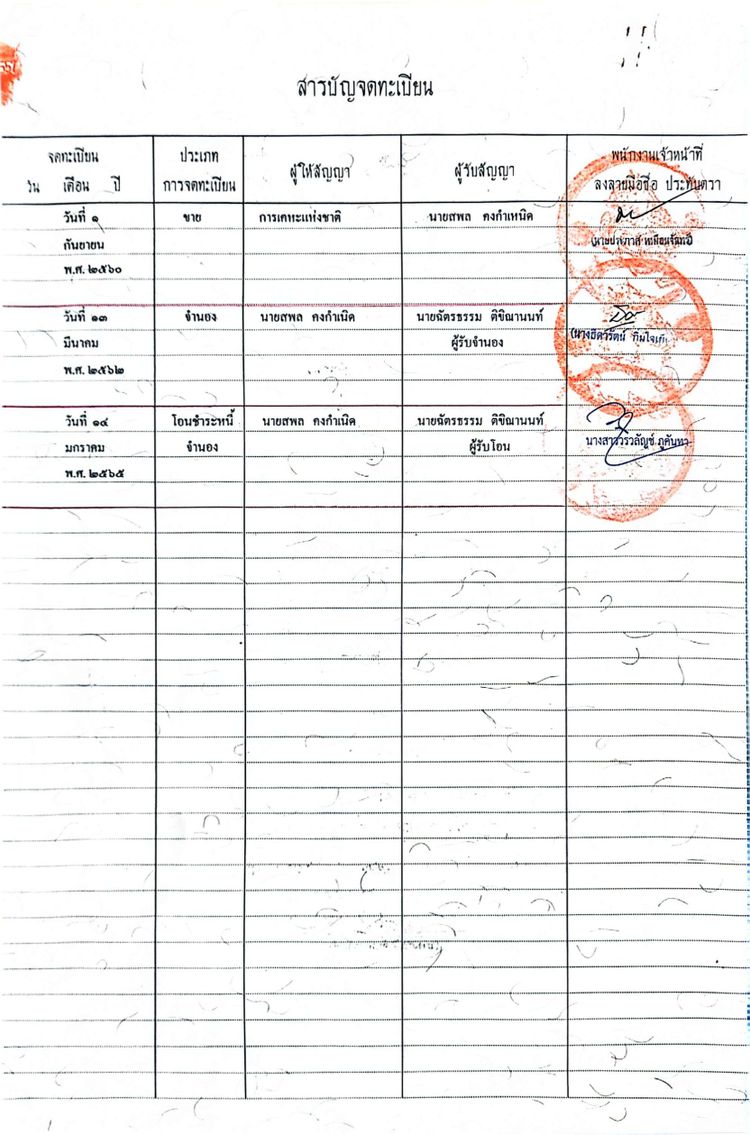 สารบัญจดทะเบียน
จดทะเบียน
วัน เดือน ปี
ประเภท
การจดทะเบียน
ผู้ให้สัญญา
ผู้รับสัญญา
พนักงานเจ้าหน้าที่
ลงลายมือชื่อ ประทับตรา
วันที่ ๑ ขาย การเคหะแห่งชาติ นายสพล คงกำเหนิด
กันยายน
พ.ศ. ๒๕๖๐
วันที่ ๑๓ จำนอง นายสพล คงกำเนิด นายฉัตรธรรม ติขิณานนท์
มีนาคม ผู้รับจำนอง
พ.ศ. ๒๕๖๒
วันที่ ๑๔ โอนชำระหนี้ นายสพล คงกำเนิด นายฉัตรธรรม ติขิณานนท์
มกราคม จำนอง ผู้รับโอน
พ.ศ. ๒๕๖๕